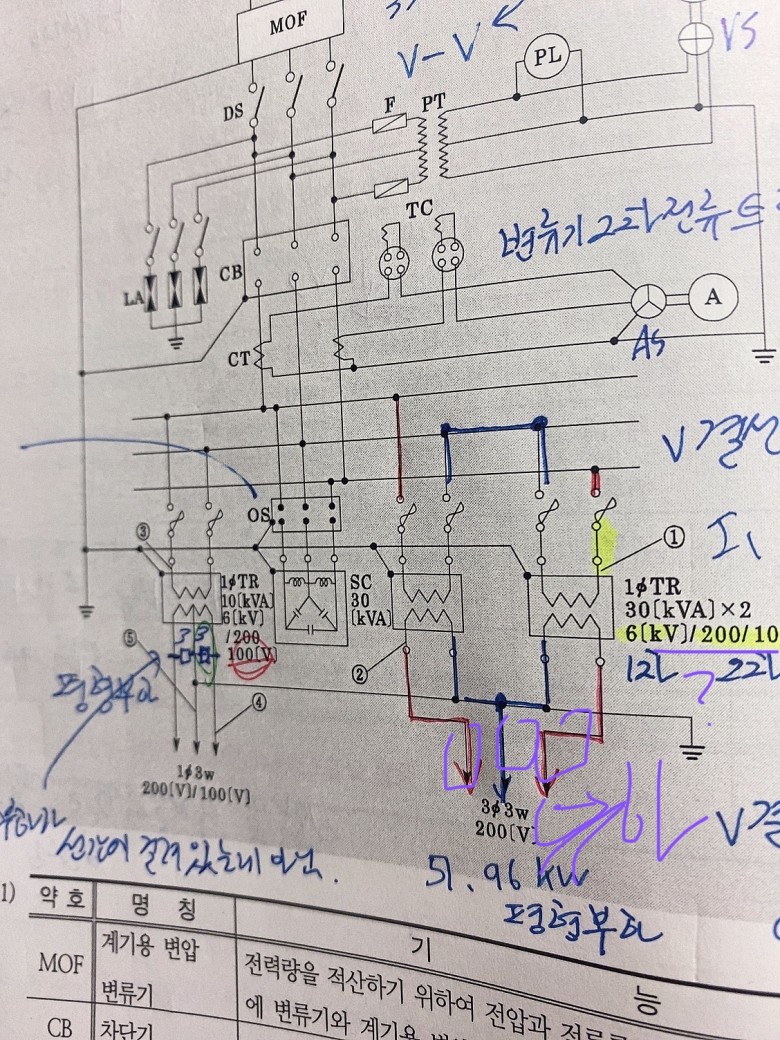 MOF
V-V
VS
PL
DS
F
PT
TC
변류기 2차전류
CB
LA
A
AS
CT
V결선
OS
③
①
I₁
1φTR
10[kVA]
6[kV]
/200
100[V]
SC
30
[kVA]
1φTR
30[kVA]×2
6[kV]/200/10
⑤
②
④
평형부하
?
1φ3w
200[V]/100[V]
3φ3w
200[V]
V결
51.96 kW
평형부하
1)
약 호
명 칭
기
능
MOF
계기용 변압
변류기
전력량을 적산하기 위하여 전압과 전류
에 변류기와 계기용
CB
차단기